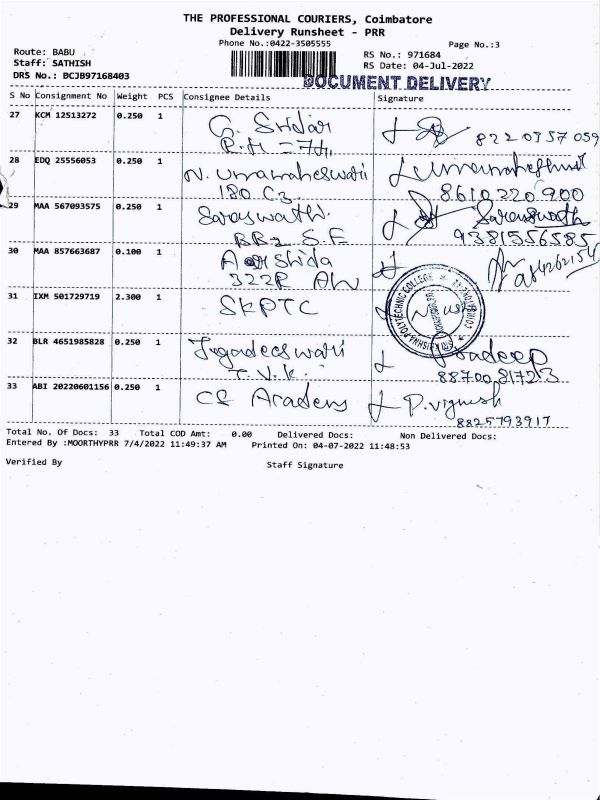 THE PROFESSIONAL COURIERS, Coimbatore
Delivery Runsheet - PRR
Phone No.:0422-3505555
Page No.:3
Route: BABU
Staff: SATHISH
DRS No.: DCJB97168403
RS No.: 971684
RS Date: 04-Jul-2022
DOCUMENT DELIVERY
S No Consignment No Weight PCS Consignee Details Signature
27 KCM 12513272 0.250 1 G. Sridar
P.H = 74, 8220957059
28 EDQ 25556053 0.250 1 N. Umamaheswari
180 C3 8610220900
29 MAA 567093575 0.250 1 Saraswathi.
BB2 S.F 9381556585
30 MAA 857663687 0.100 1 Aarshida
322R
31 IXM 501729719 2.300 1 SKPTC
POLYTECHNIC COLLEGE
32 BLR 4651985828 0.250 1 Jegadeeswari Pradeep
T.V.K. 8870081723
33 ABI 20220601156 0.250 1 P.vignesh
8825793917
Total No. Of Docs: 33 Total COD Amt: 0.00 Delivered Docs: Non Delivered Docs:
Entered By :MOORTHYPRR 7/4/2022 11:49:37 AM Printed On: 04-07-2022 11:48:53
Verified By
Staff Signature